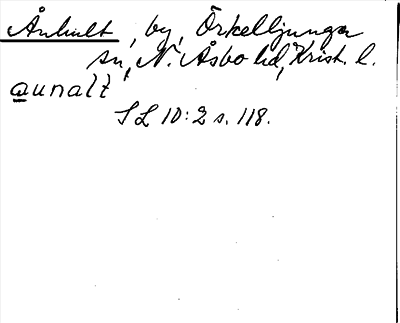 Ånhult, by, Örkelljunga
sn, N. Åsbo hd, Krist. l.
aunalt
SL 10:2 s. 118.